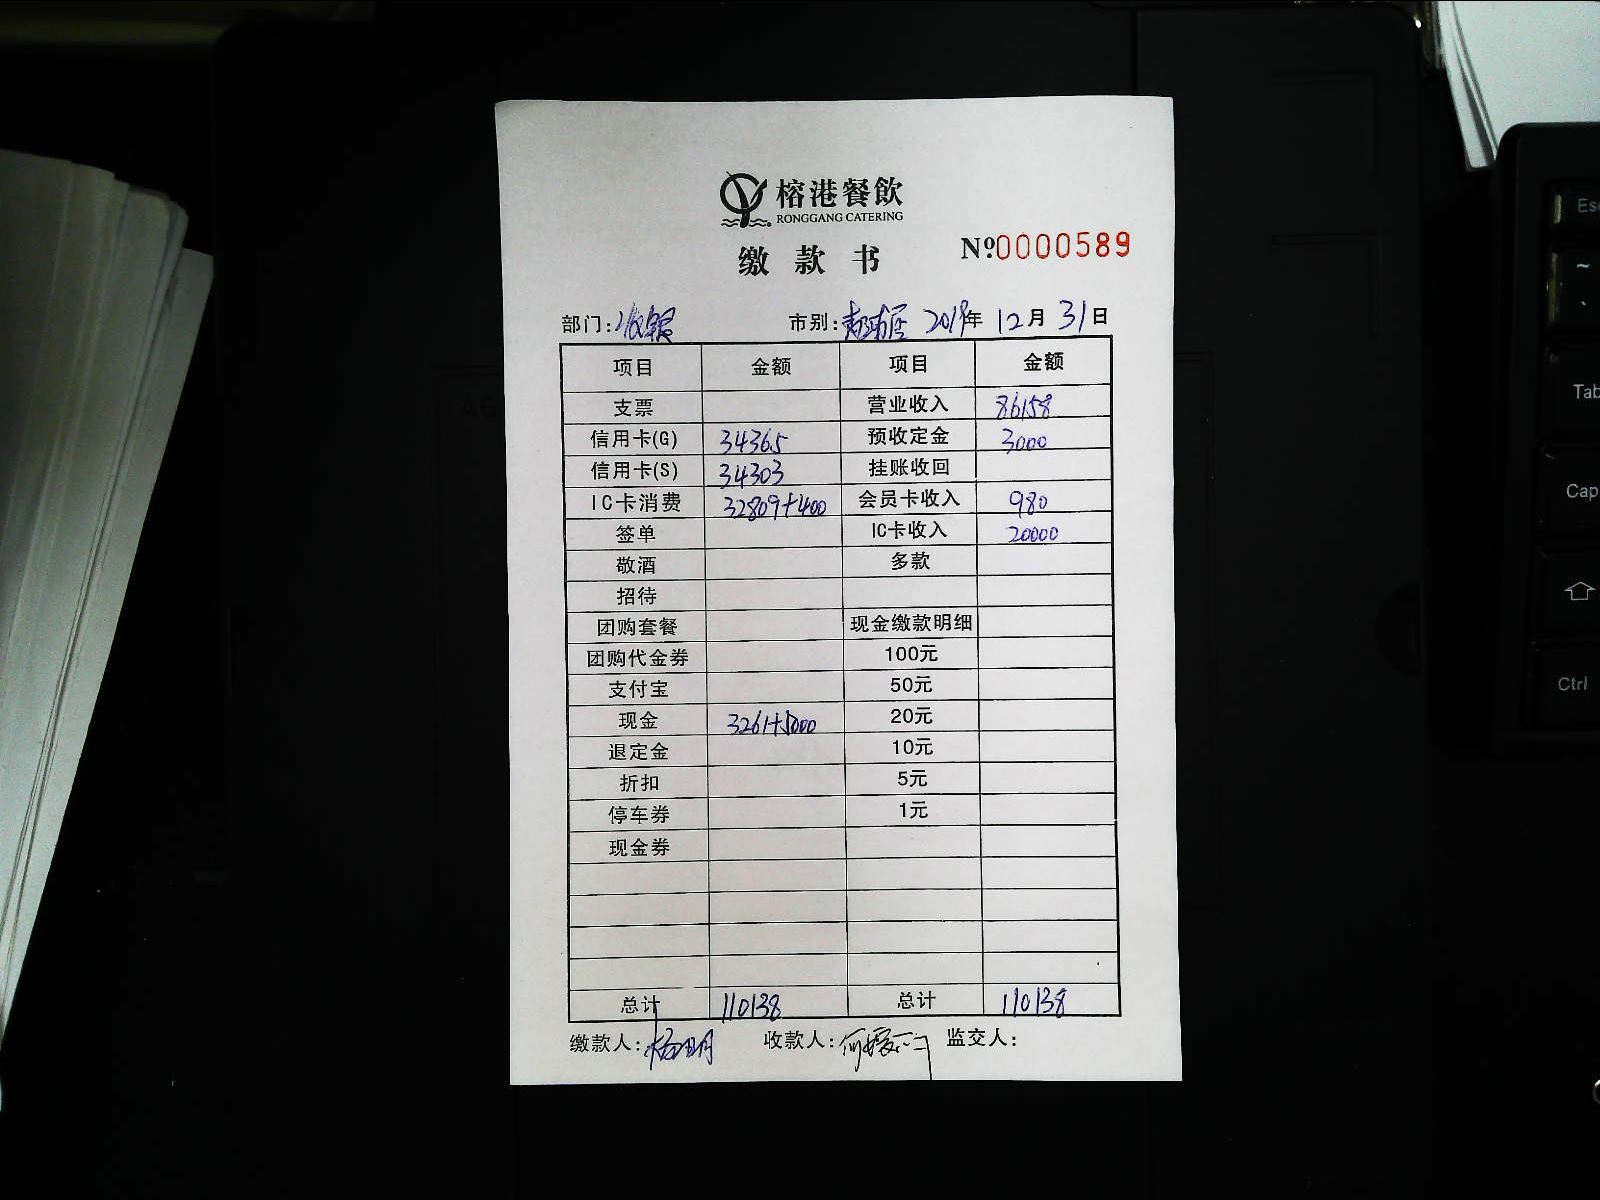 榕港餐飲
RONGGANG CATERING
缴款书
№0000589
部门:收银 市别: 2019年 12月 31日
项目 金额 项目 金额
支票 营业收入 86158
信用卡(G) 34365 预收定金 3000
信用卡(S) 34303 挂账收回
IC卡消费 32809+400 会员卡收入 980
签单 IC卡收入 20000
敬酒 多款
招待
团购套餐 现金缴款明细
团购代金券 100元
支付宝 50元
现金 3261+5000 20元
退定金 10元
折扣 5元
停车券 1元
现金券
总计 110138 总计 110138
缴款人: 收款人: 监交人:
Es
~
Tab
Cap
Ctrl